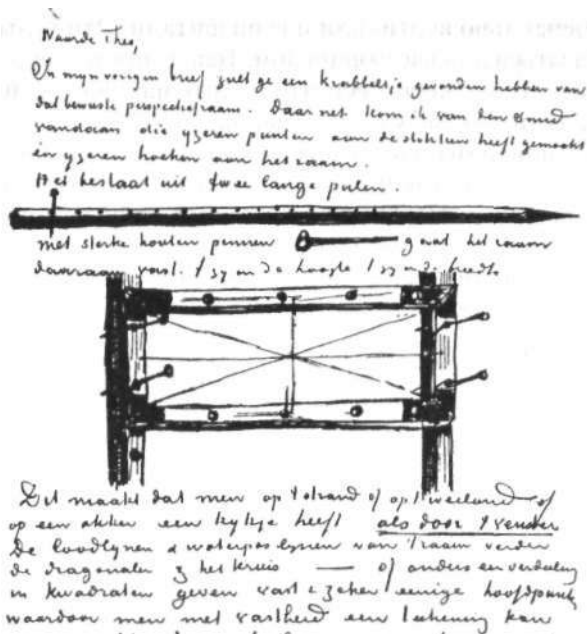 Waarde Theo,
In mijn vorigen brief zult ge een krabbeltje gevonden hebben van
dat bewuste perspectiefraam. Daar net kom ik van den smid
vandaan die yzeren punten aan de stokken heeft gemaakt
en yzeren hoeken aan het raam.
Het bestaat uit twee lange palen.
met sterke houten pennen gaat het raam
daaraan vast. 't zy in de hoogte 't zy in de breedte
Dit maakt dat men op 't strand of op 't weiland of
op een akker een kykje heeft als door 't venster
De loodlynen & waterpaslynen van 't raam verder
de diagonalen & het kruis — of anders een verdeling
in kwadraten geven vast & zeker eenige hoofdpunten
waardoor men met vastheid een teekening kan